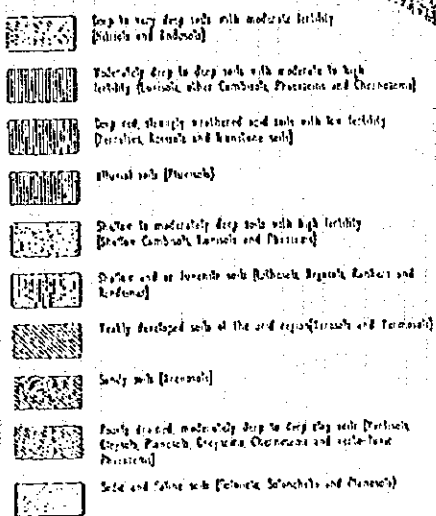 Deep to very deep soils with moderate fertility
(Nitisols and Andosols)
Moderately deep to deep soils with moderate to high
fertility (Luvisols, other Cambisols, Phaeozems and Chernozems)
Deep red, strongly weathered acid soils with low fertility
(Ferralsols, Acrisols and Ironstone soils)
Alluvial soils (Fluvisols)
Shallow to moderately deep soils with high fertility
(Shallow Cambisols, Luvisols and Phaeozems)
Shallow and or Juvenile soils (Lithosols, Regosols, Rankers and
Rendzinas)
Weakly developed soils of the arid region (Xerosols and Yermosols)
Sandy soils (Arenosols)
Poorly drained, moderately deep to deep clay soils (Vertisols,
Gleysols, Planosols, Greyzems, Chernozems and
Phaeozems)
Sodic and Saline soils (Solonetz, Solonchaks and Planosols)